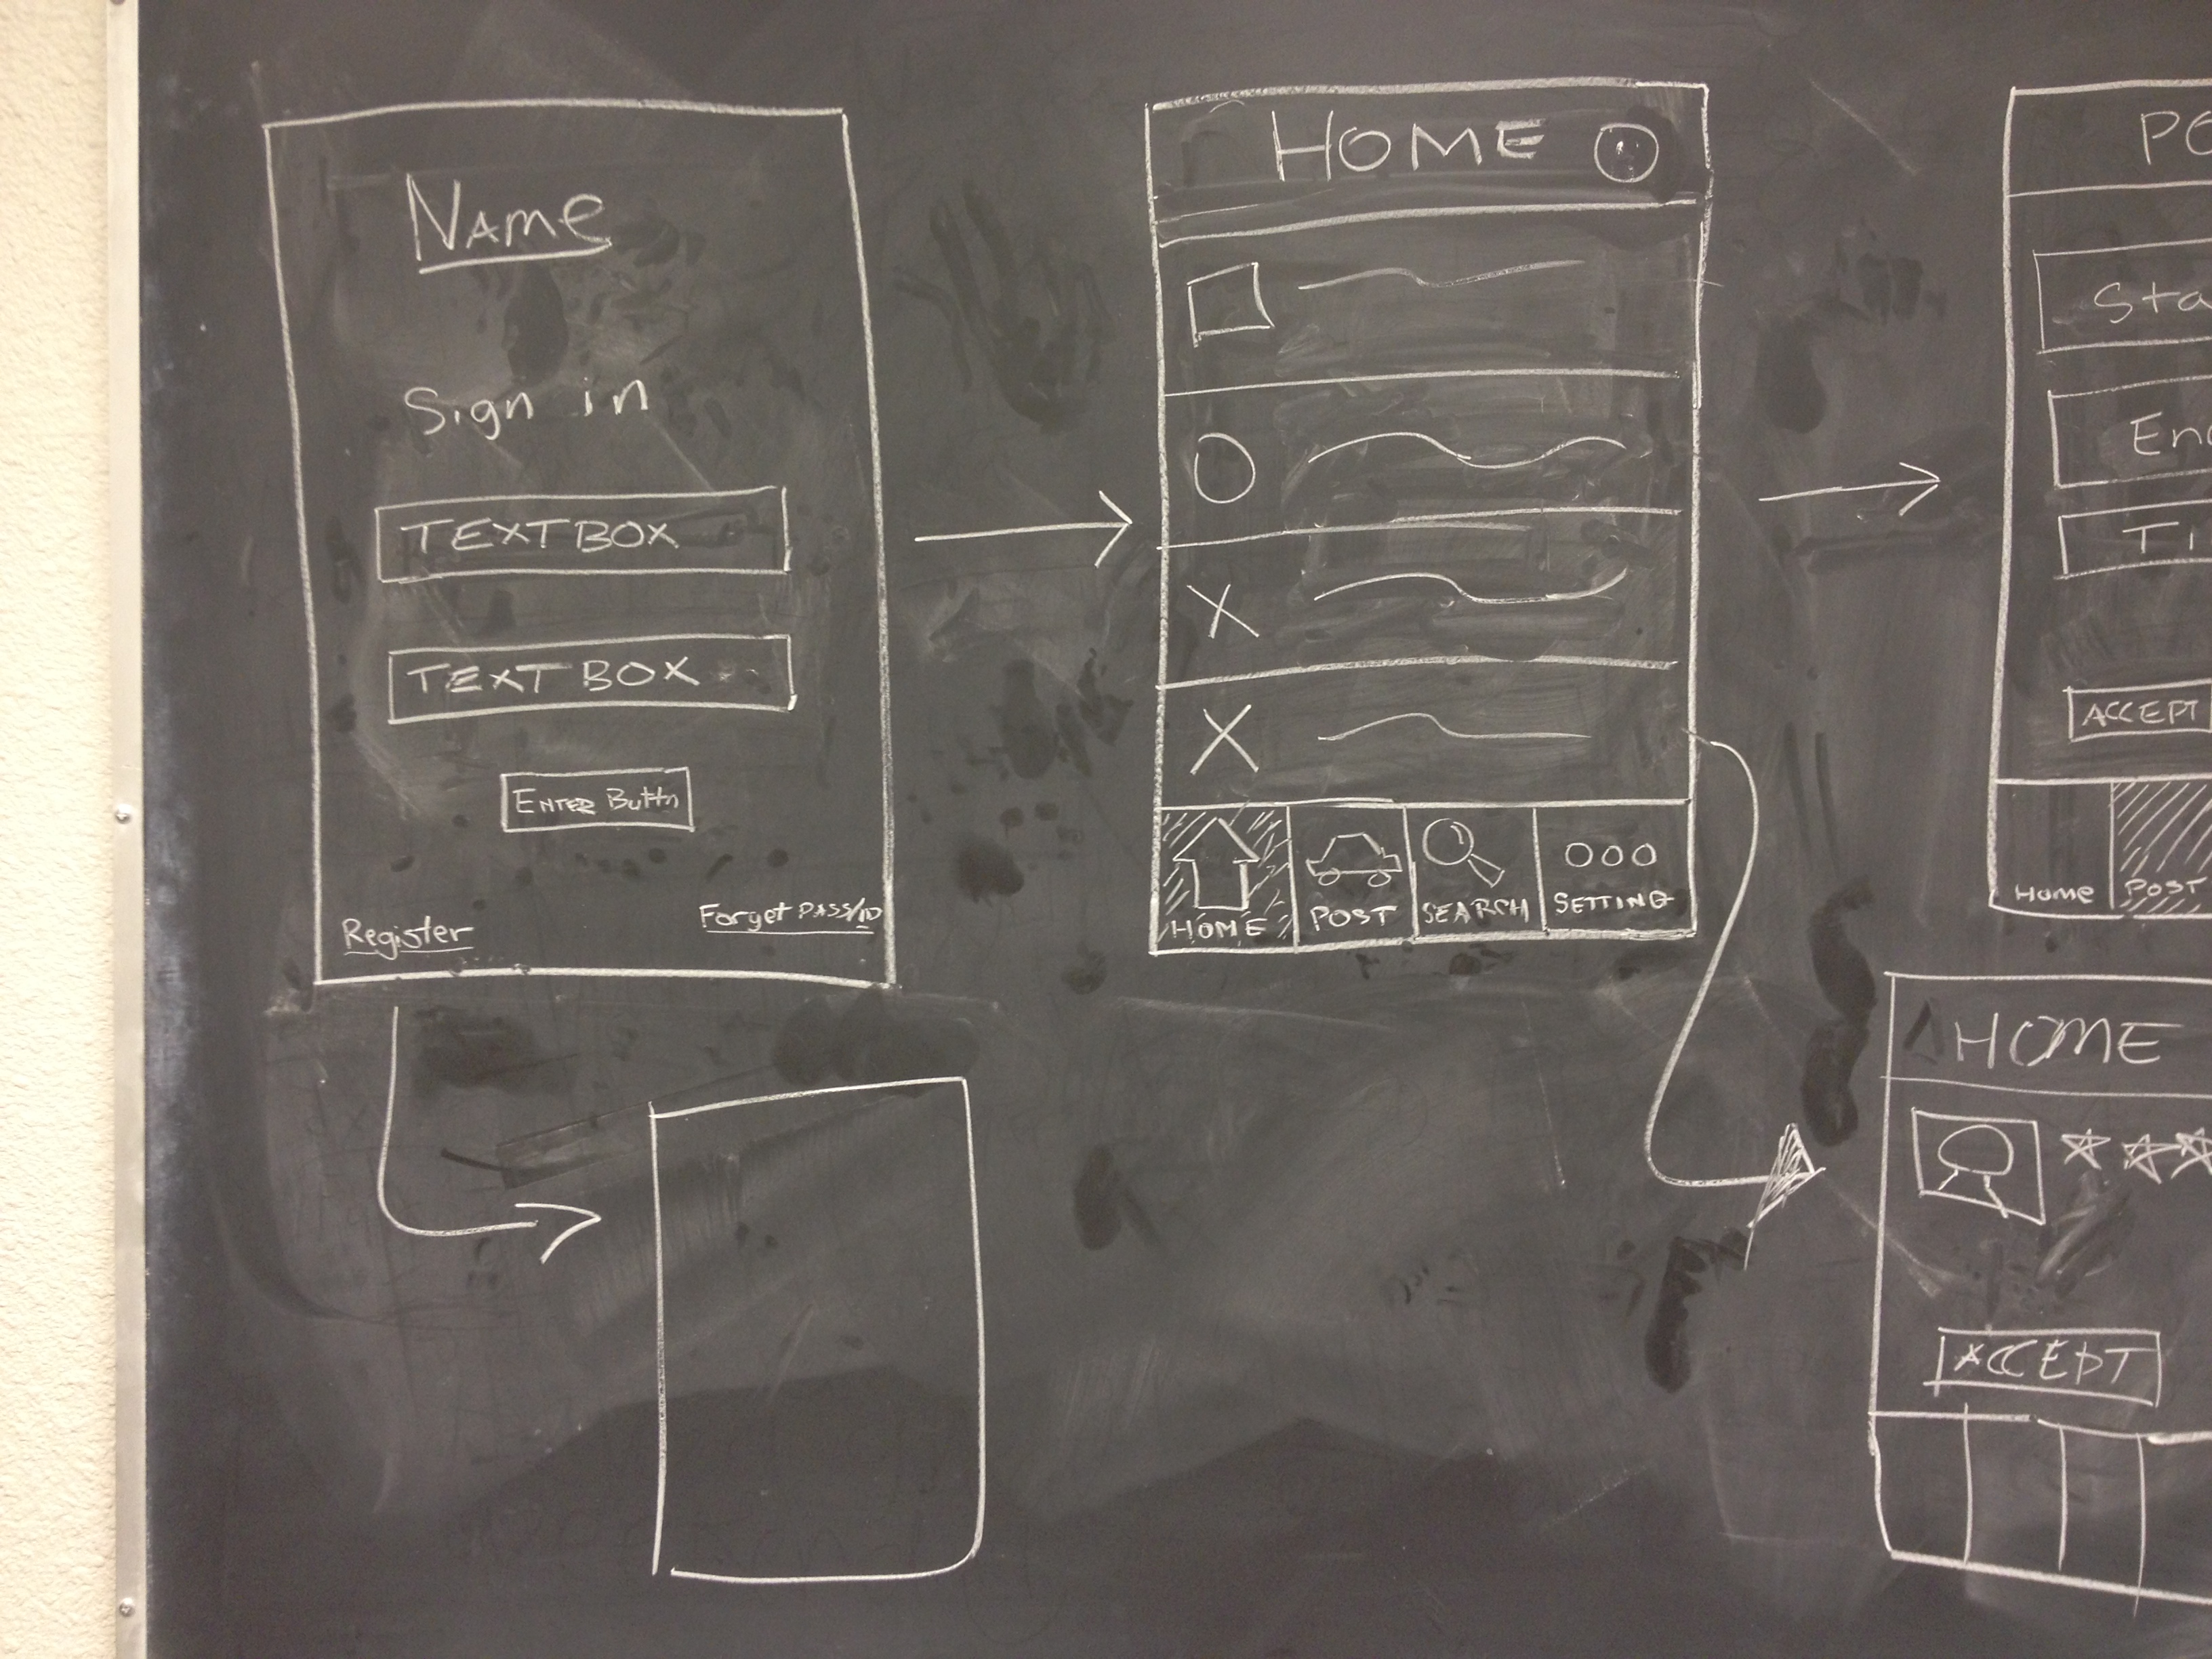 Name
Sign in
TEXTBOX
TEXT BOX
ENTER Buttn
Register
Forget PASS/ID
HOME
HOME
POST
SEARCH
SETTING
PO
Sta
En
TI
ACCEPT
Home
POST
HOME
ACCEPT